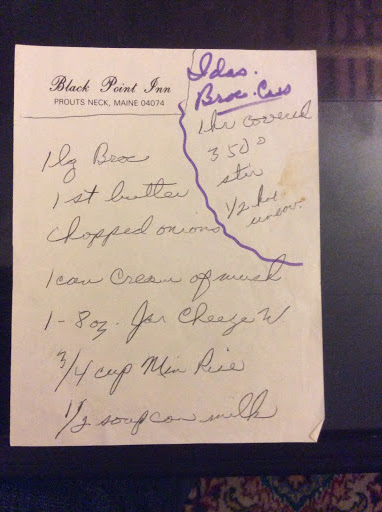 Black Point Inn
PROUTS NECK, MAINE 04074
Idas.
Broc. Cas
1 hr covered
350°
stir
1/2 hr
uncov.
1 lg Broc
1 st butter
chopped onions
1 can Cream of mush
1 - 8 oz. Jar Cheeze W
3/4 cup Min Rice
1 1/2 soup can milk